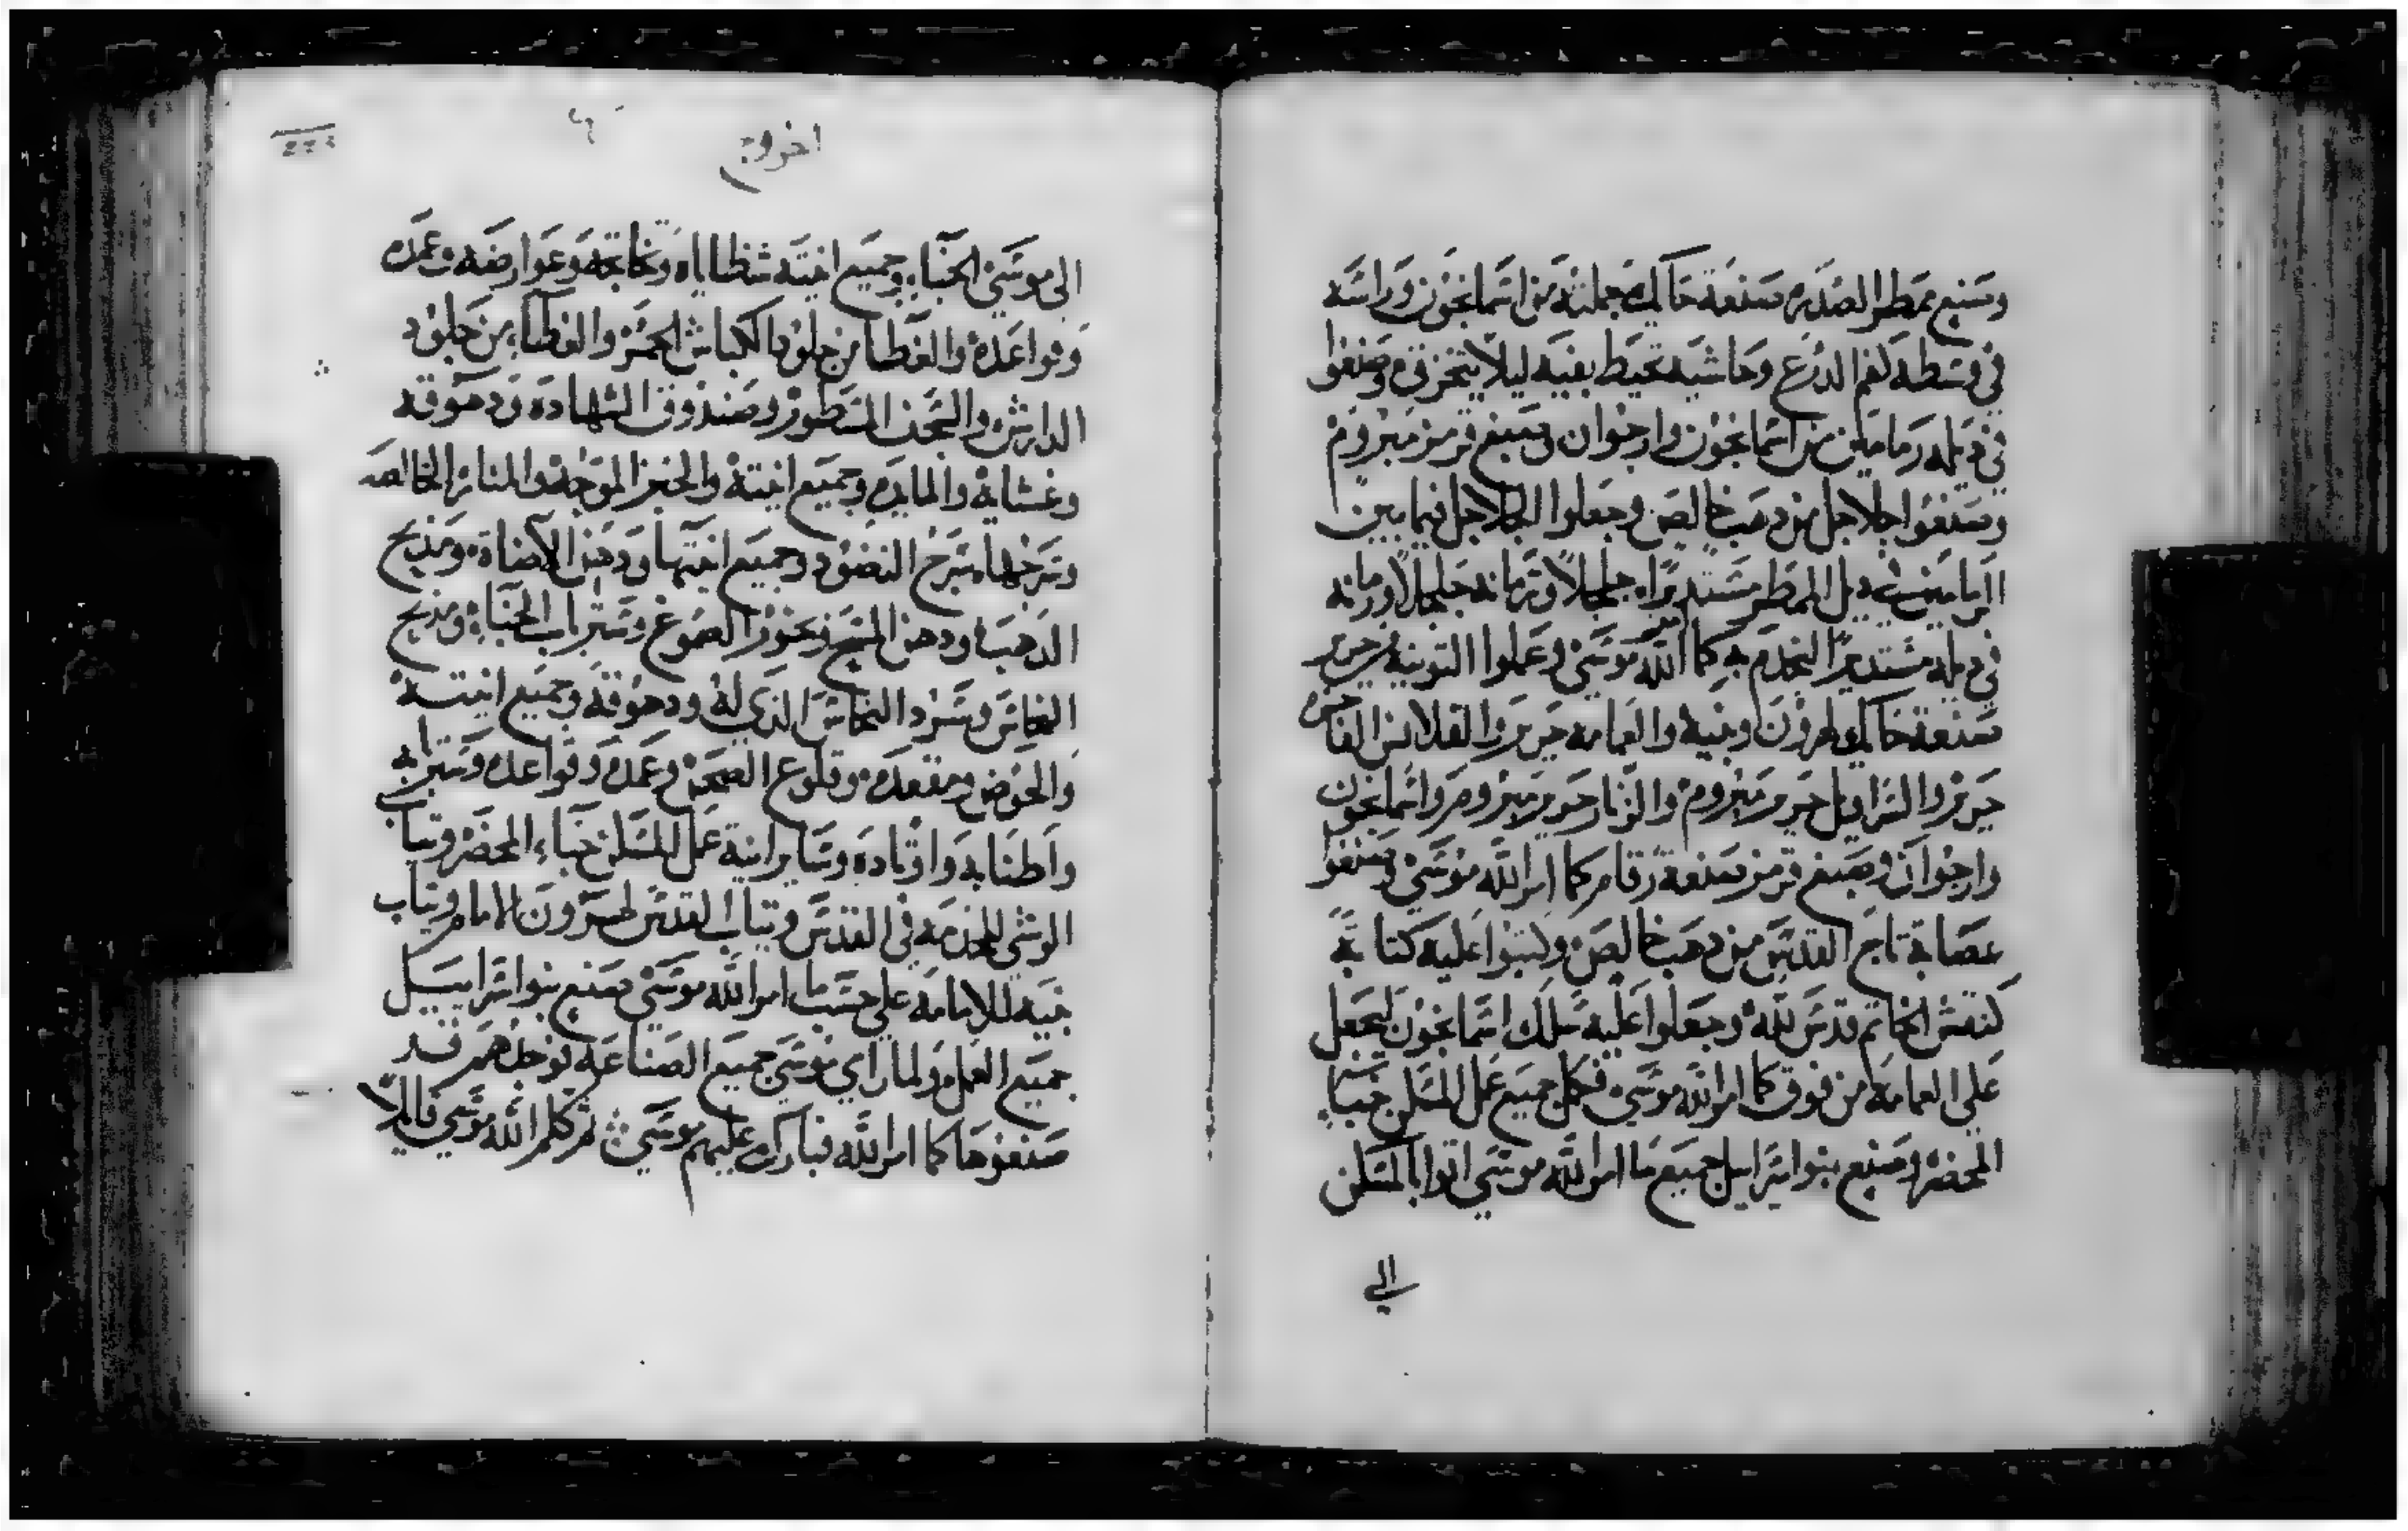 وصنع ممطر الصدره صنعة حايك جملته من اسمانجون وراسه
في وسطه كفم الدرع وحاشيه تحيط بفيه ليلا يتخزق وصنعوا
في ذيله رمامين من اسمانجون وارجوان وصبغ قرمز مبروم
وصنعوا جلاجل من ذهب خالص وجعلوا الجلاجل فيما بين
الرمامين في ذيل الممطر مستديرا جلجلا ورمانه جلجلا ورمانه
في ذيله مستديرا ليخدم به كما امر الله موسي وعملوا التونيه حرير
صنعة حايك لهرون وبنيه والعمامه حرير والقلانس الفاخره
حرير والسراويل حرير مبروم والزنار حرير مبروم واسمانجون
وارجوان وصبغ قرمز صنعة رقام كما امر الله موسي وصنعوا
عصابة تاج القدس من ذهب خالص وكتبوا عليه كتابة
كنقش الخاتم قدس لله وجعلوا عليه سلك اسمانجون ليجعل
علي العمامه من فوق كما امر الله موسي فكمل جميع عمل المسكن خباء
المحضر وصنع بنوا سراييل جميع ما امر الله موسي اتوا بالمسكن
الي
اخروج
الي موسي الخباء وجميع انيته شظاياه وتخاتجه وعوارضه وعمده
وقواعده والغطا من جلود الكباش المحمر والغطاء من جلود
الدارش والسجف المسطور وصندوق الشهاده ودهوقه
وغشايه والمايده وجميع انيته والخبز الموجه والمناره الخالصه
وسرجها سرج النضود وجميع انيتها ودهن الاضاة ومذبح
الذهب ودهن المسح وبخور الصموغ وستر باب الخباء ومذبح
النحاس وسرد النحاس الذي له ودهوقه وجميع انيته
والحوض ومقعده وقلوع الصحن وعمده وقواعده وستر بابه
واطنابه واوتاده وساير انية عمل المسكن خباء المحضر وثياب
الوشي للخدمه في القدس وثياب القدس لهرون الامام وثياب
بنيه للامامه علي حسب ما امر الله موسي صنع بنوا سراييل
جميع العمل ولما راي موسي جميع الصناعه نوجدهم قد
صنعوها كما امر الله فبارك عليهم موسي ثم كلم الله موسي قايلا